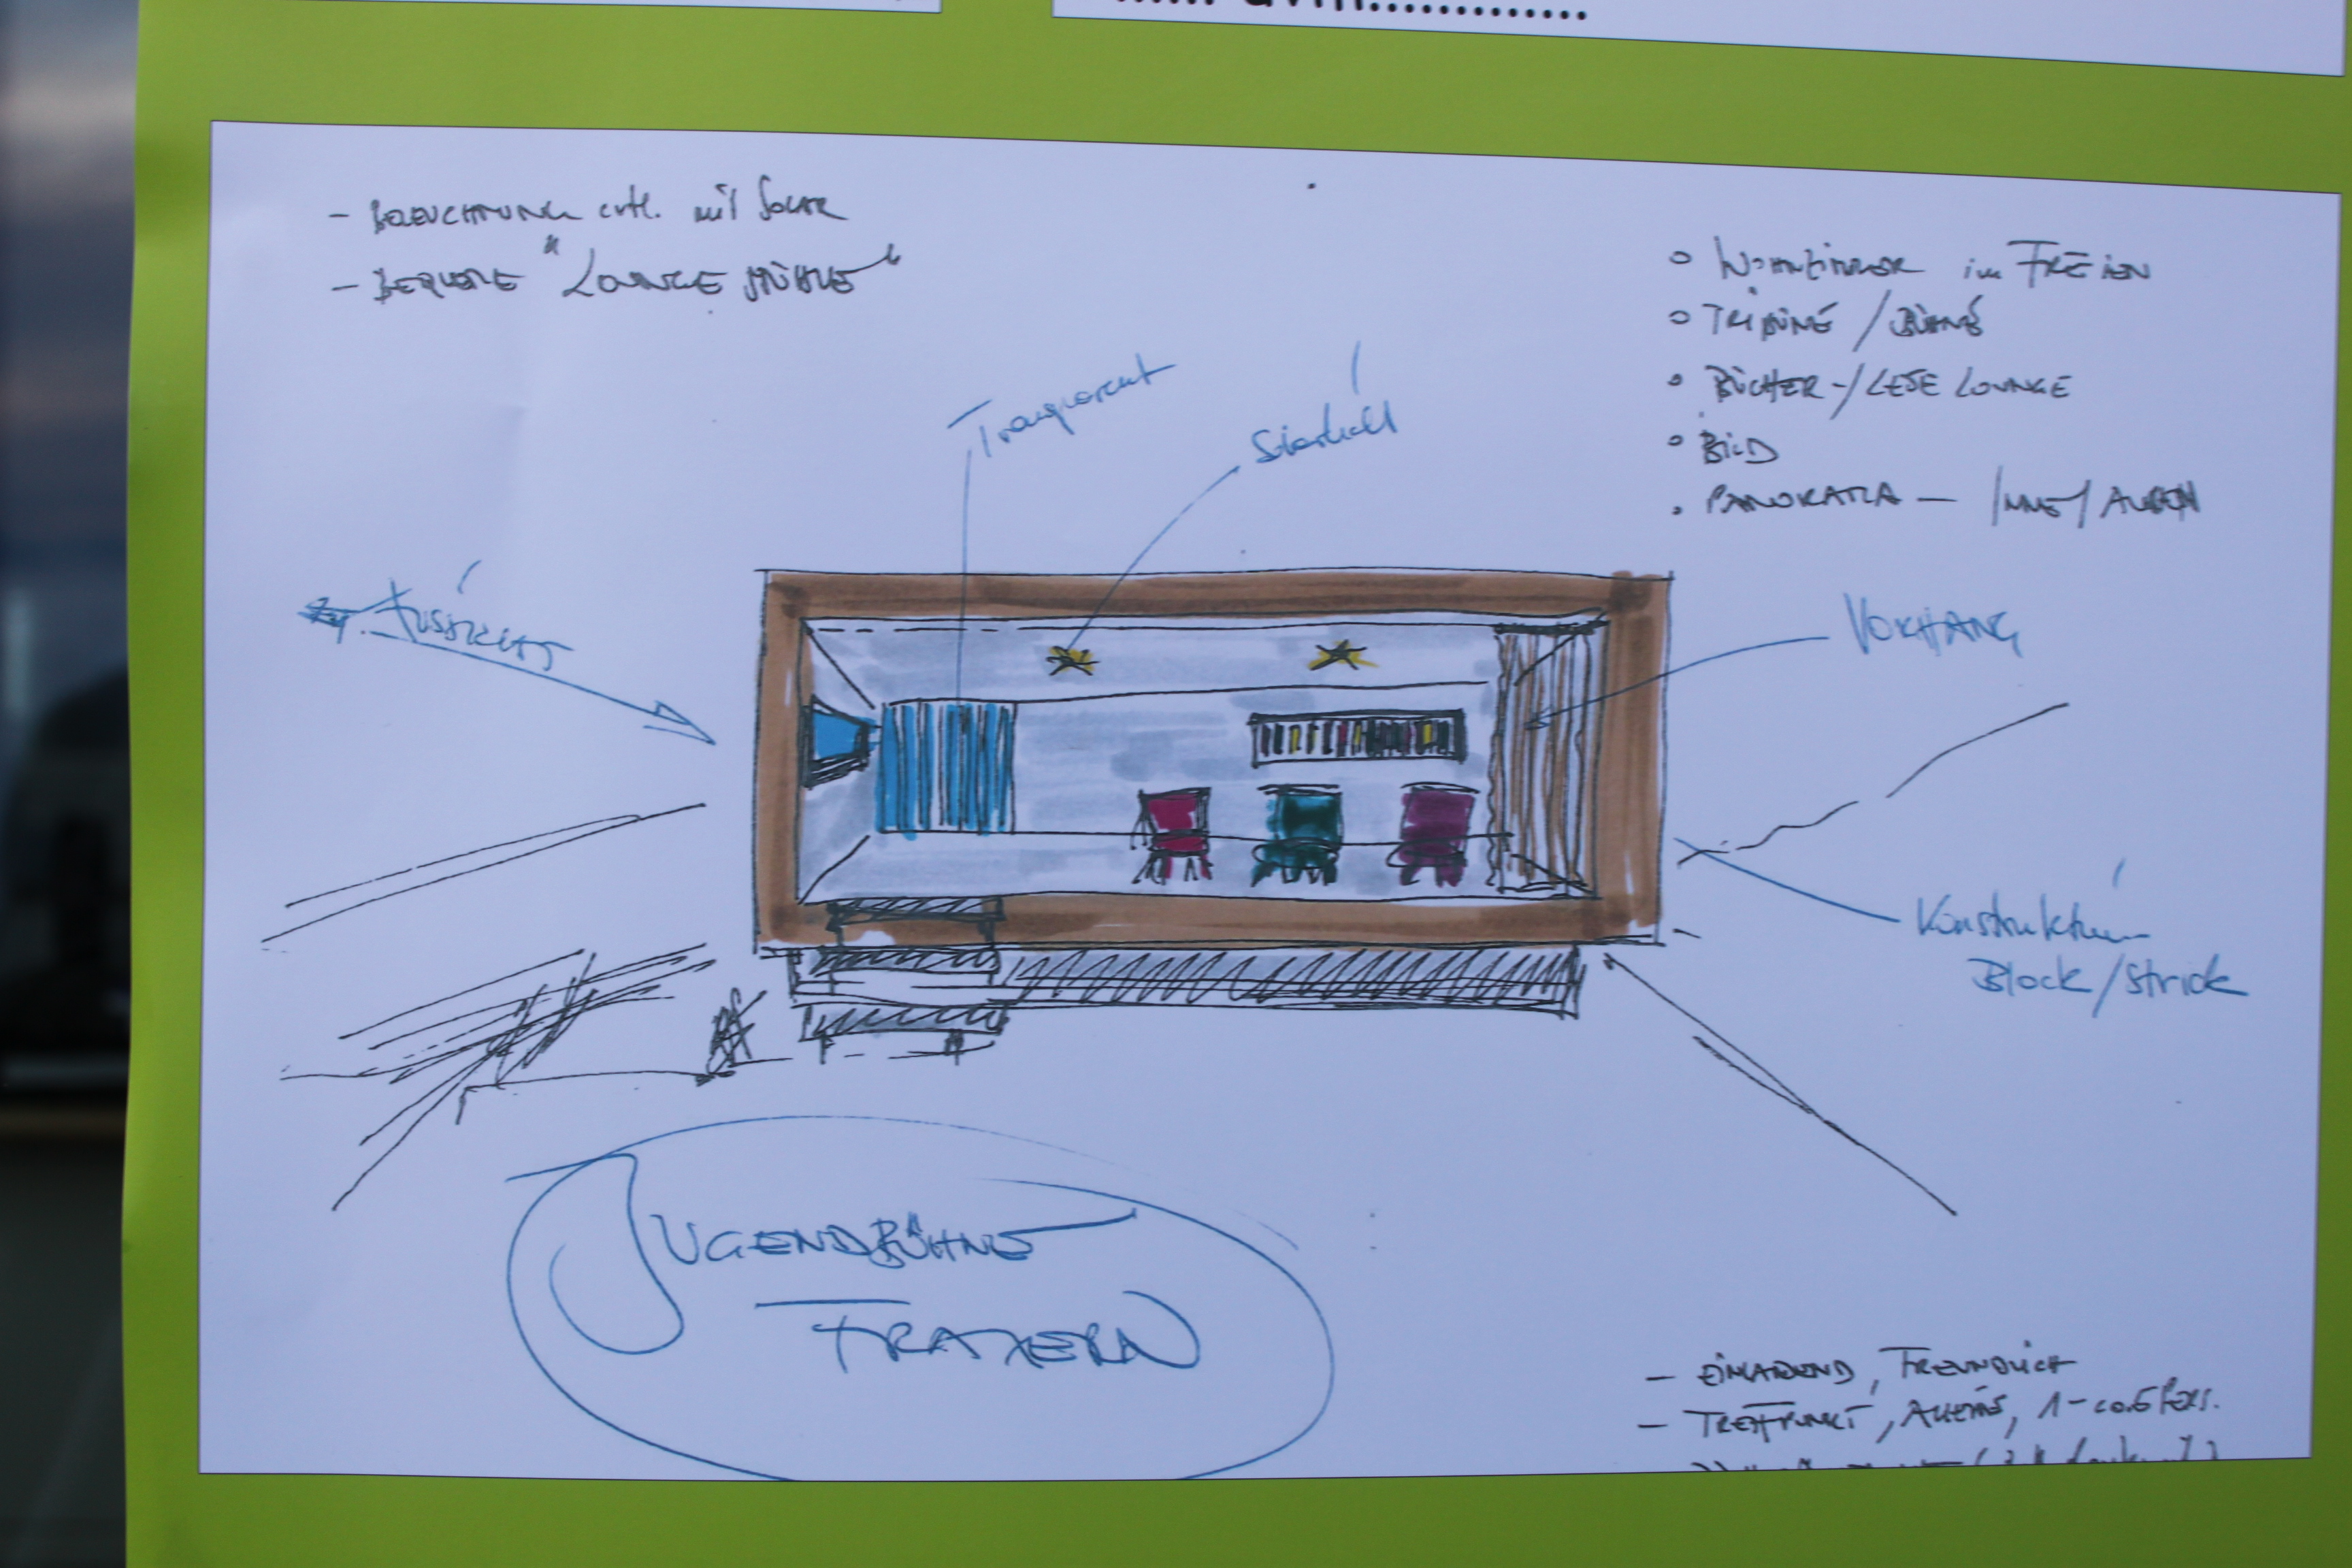 - BELEUCHTUNG evtl. mit Solar
- BEQUEME "LOUNGE STÜHLE"
o WOHNZIMMER im FREIEN
o TRIBÜNE / BÜHNE
o BÜCHER-/LESE LOUNGE
o BILD
o PANORAMA - INNE/AUSSEN
Transparent
AUSSICHT
VORHANG
Konstruktion
Block/Strick
JUGENDBÜHNE
FRAXERN
- EINLADEND, FREUNDLICH
- TREFFPUNKT, ALLEINE, 1-ca.6 PERS.